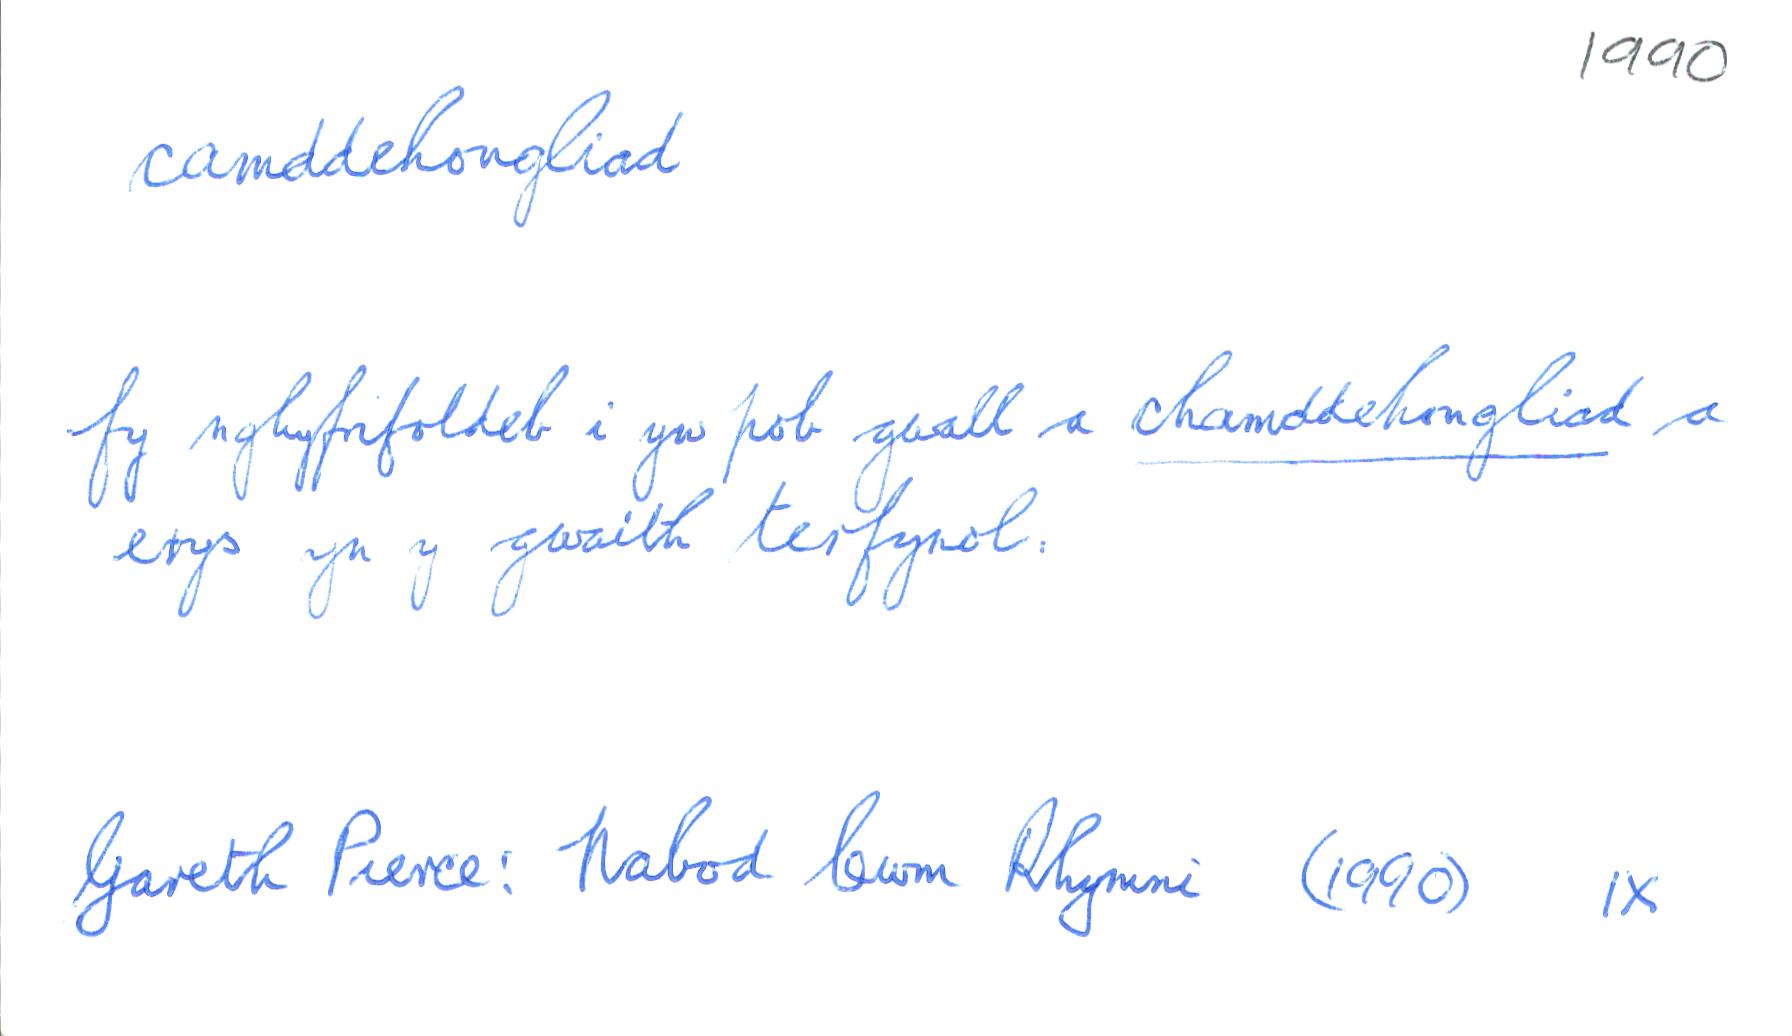 1990
camddehongliad
fy nghyfrifoldeb i yw pob gwall a chamddehongliad a
erys yn y gwaith terfynol.
Gareth Pierce: Nabod Cwm Rhymni (1990) ix